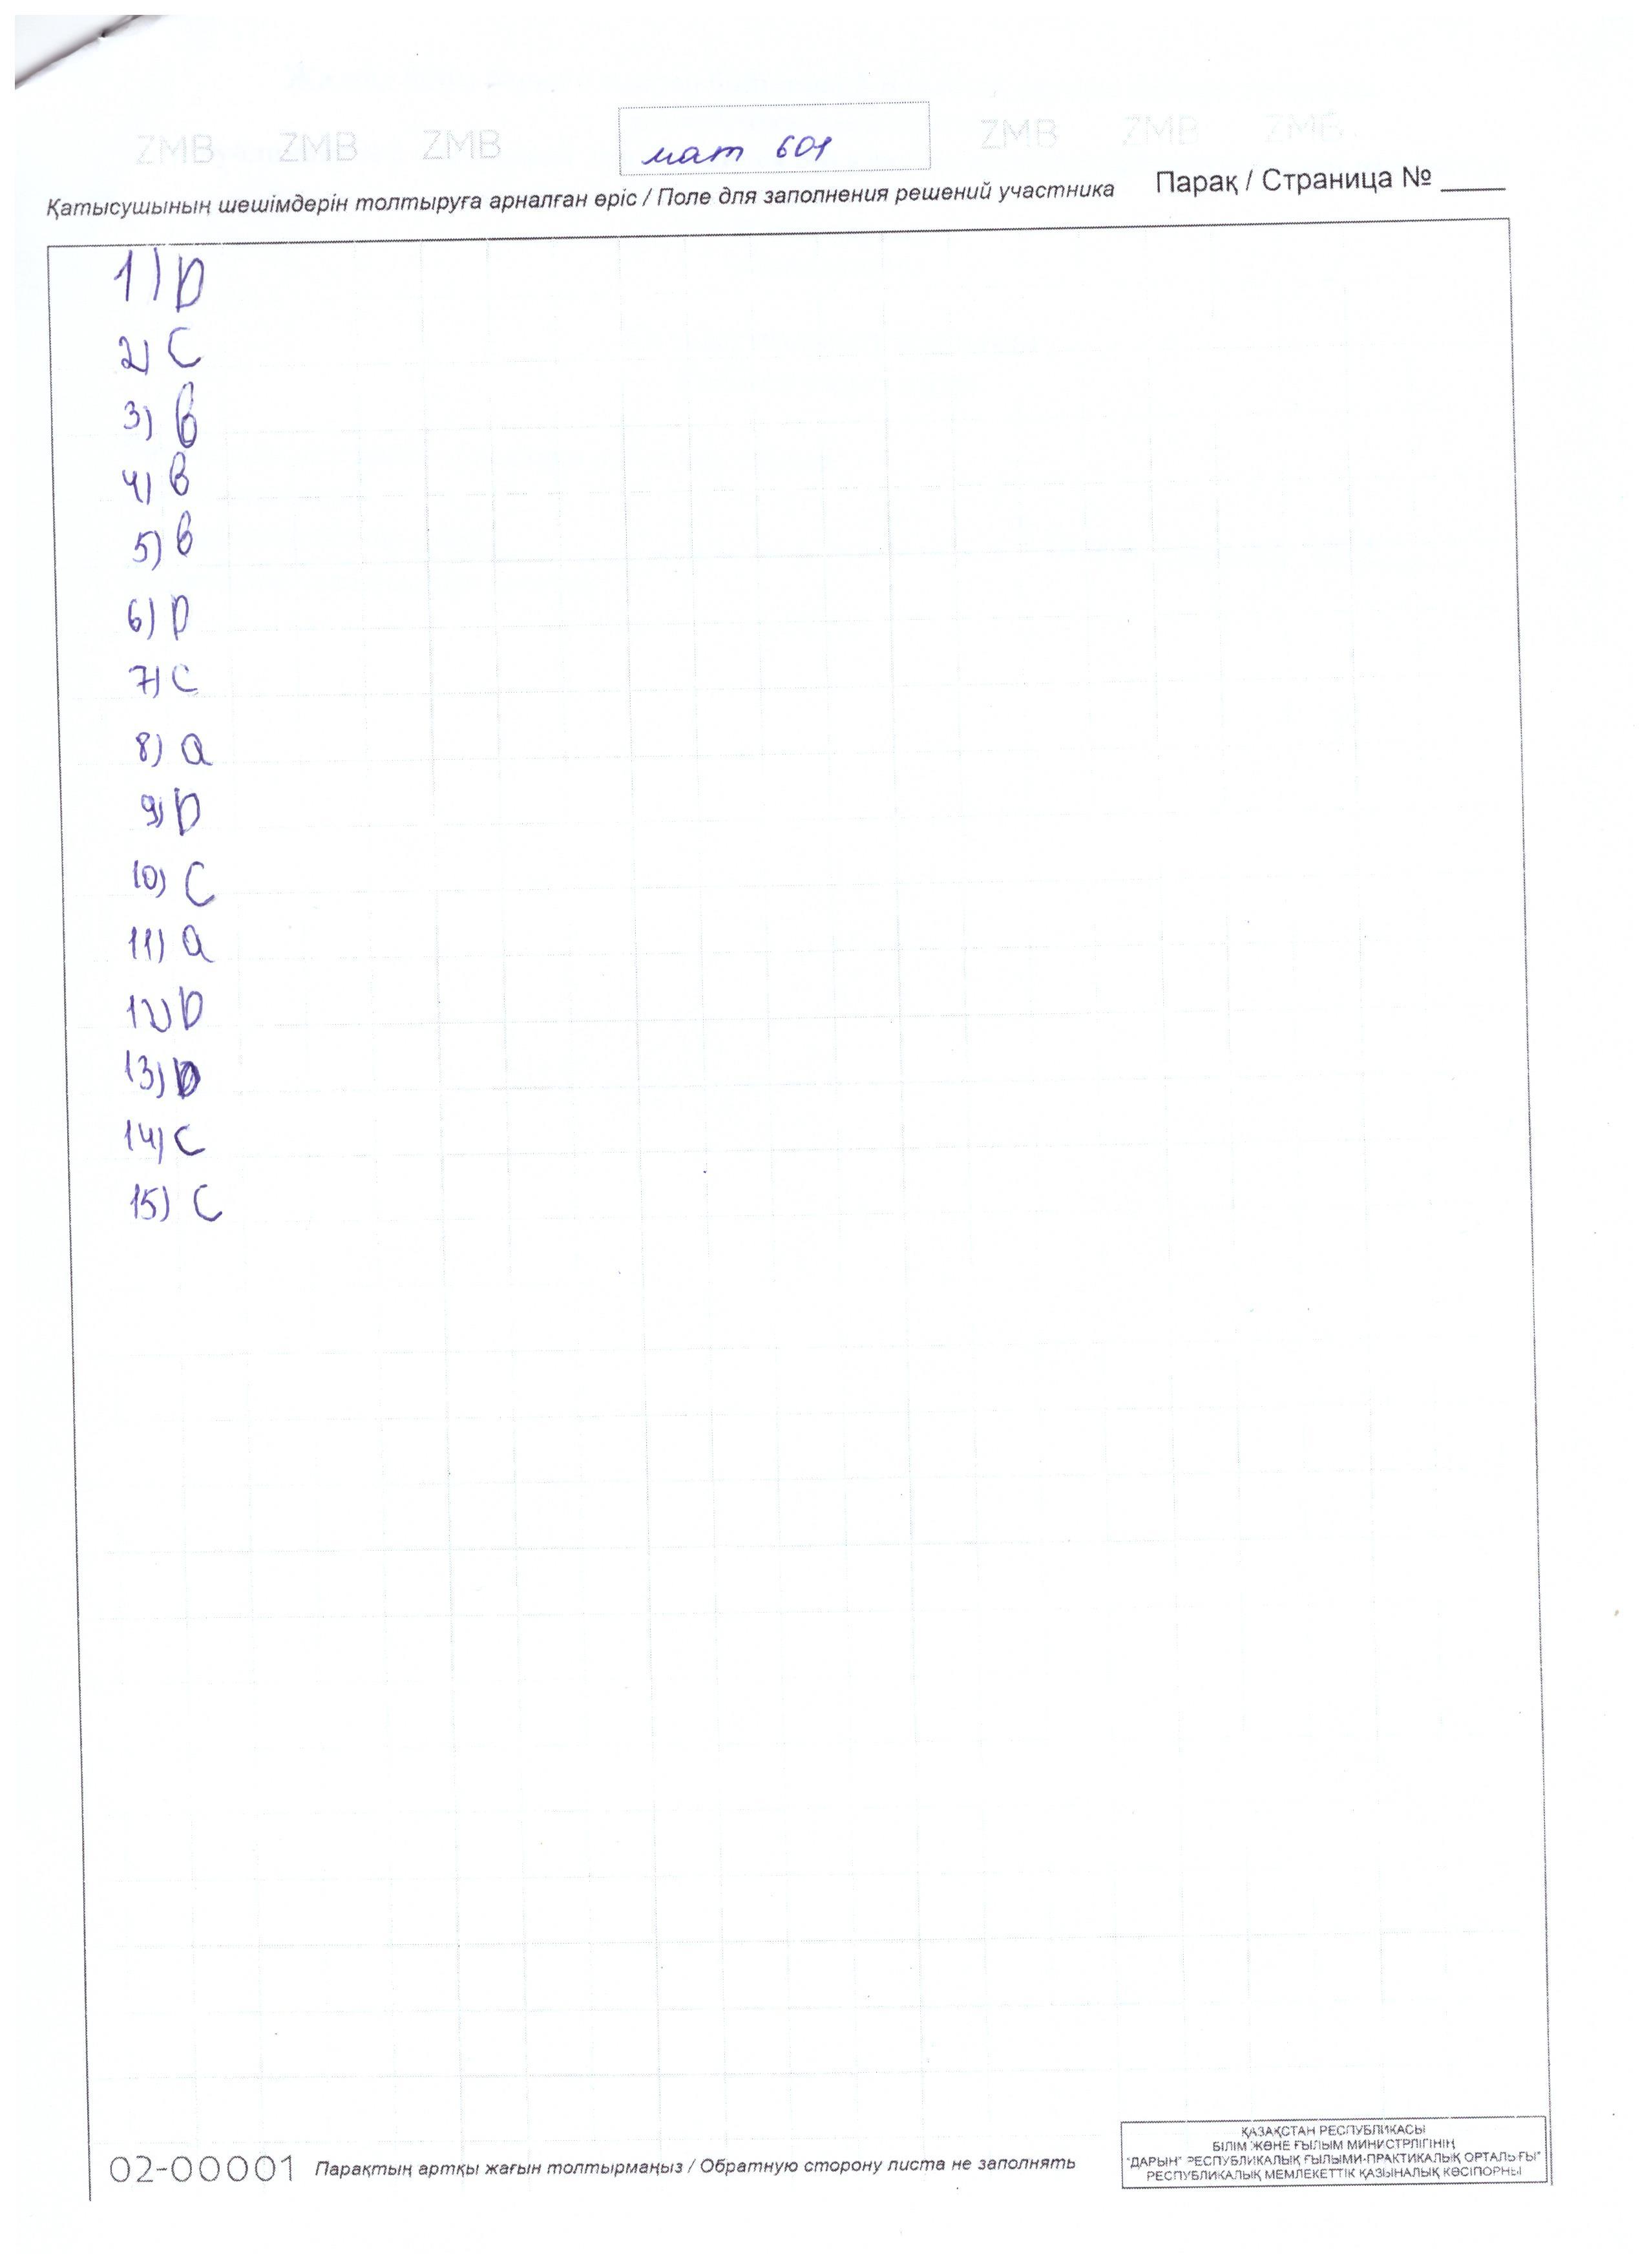 ZMB ZMB ZMB мат 601 ZMB ZMB ZMB
Қатысушының шешімдерін толтыруға арналған өріс / Поле для заполнения решений участника Парақ / Страница № ____
1) D
2) C
3) B
4) B
5) B
6) D
7) C
8) a
9) D
10) C
11) a
12) D
13) D
14) C
15) C
02-00001 Парақтың артқы жағын толтырмаңыз / Обратную сторону листа не заполнять
ҚАЗАҚСТАН РЕСПУБЛИКАСЫ
БІЛІМ ЖӘНЕ ҒЫЛЫМ МИНИСТРЛІГІНІҢ
"ДАРЫН" РЕСПУБЛИКАЛЫҚ ҒЫЛЫМИ-ПРАКТИКАЛЫҚ ОРТАЛЫҒЫ"
РЕСПУБЛИКАЛЫҚ МЕМЛЕКЕТТІК ҚАЗЫНАЛЫҚ КӘСІПОРНЫ